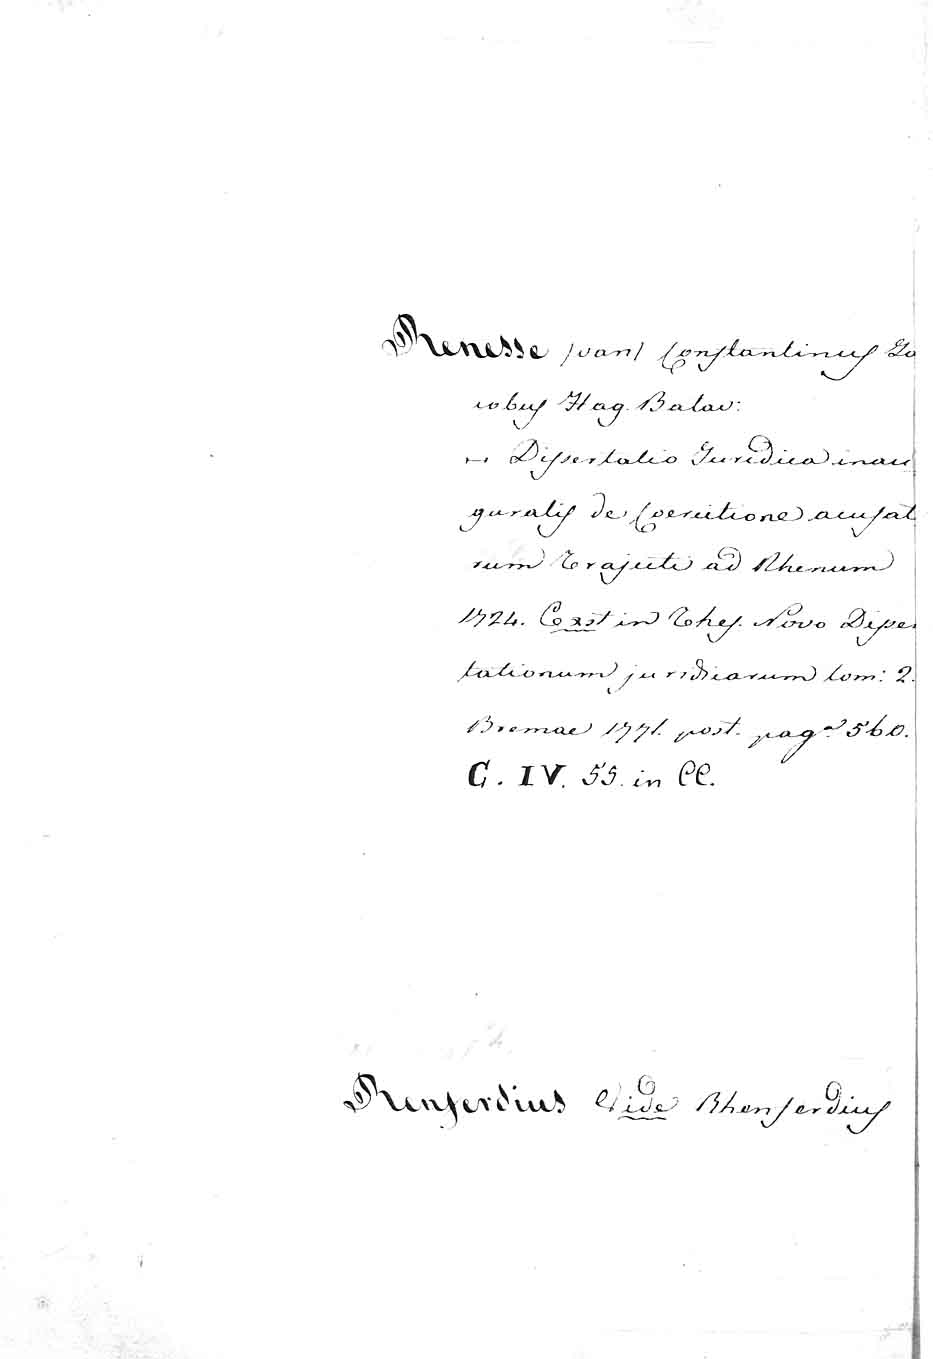 Renesse /van/ Constantinus Ja
cobus Hag. Batav:
— Dissertatio Juridica inau
guralis de Coercitione acusat
rum Trajecti ad Rhenum
1724. Exst in Thes. Novo Disser
tationum juridicarum tom: 2.
Bremae 1771. post. pag.ᵃ 560.
G. IV. 55. in CC.
Renferdius Vide Rhenferdius